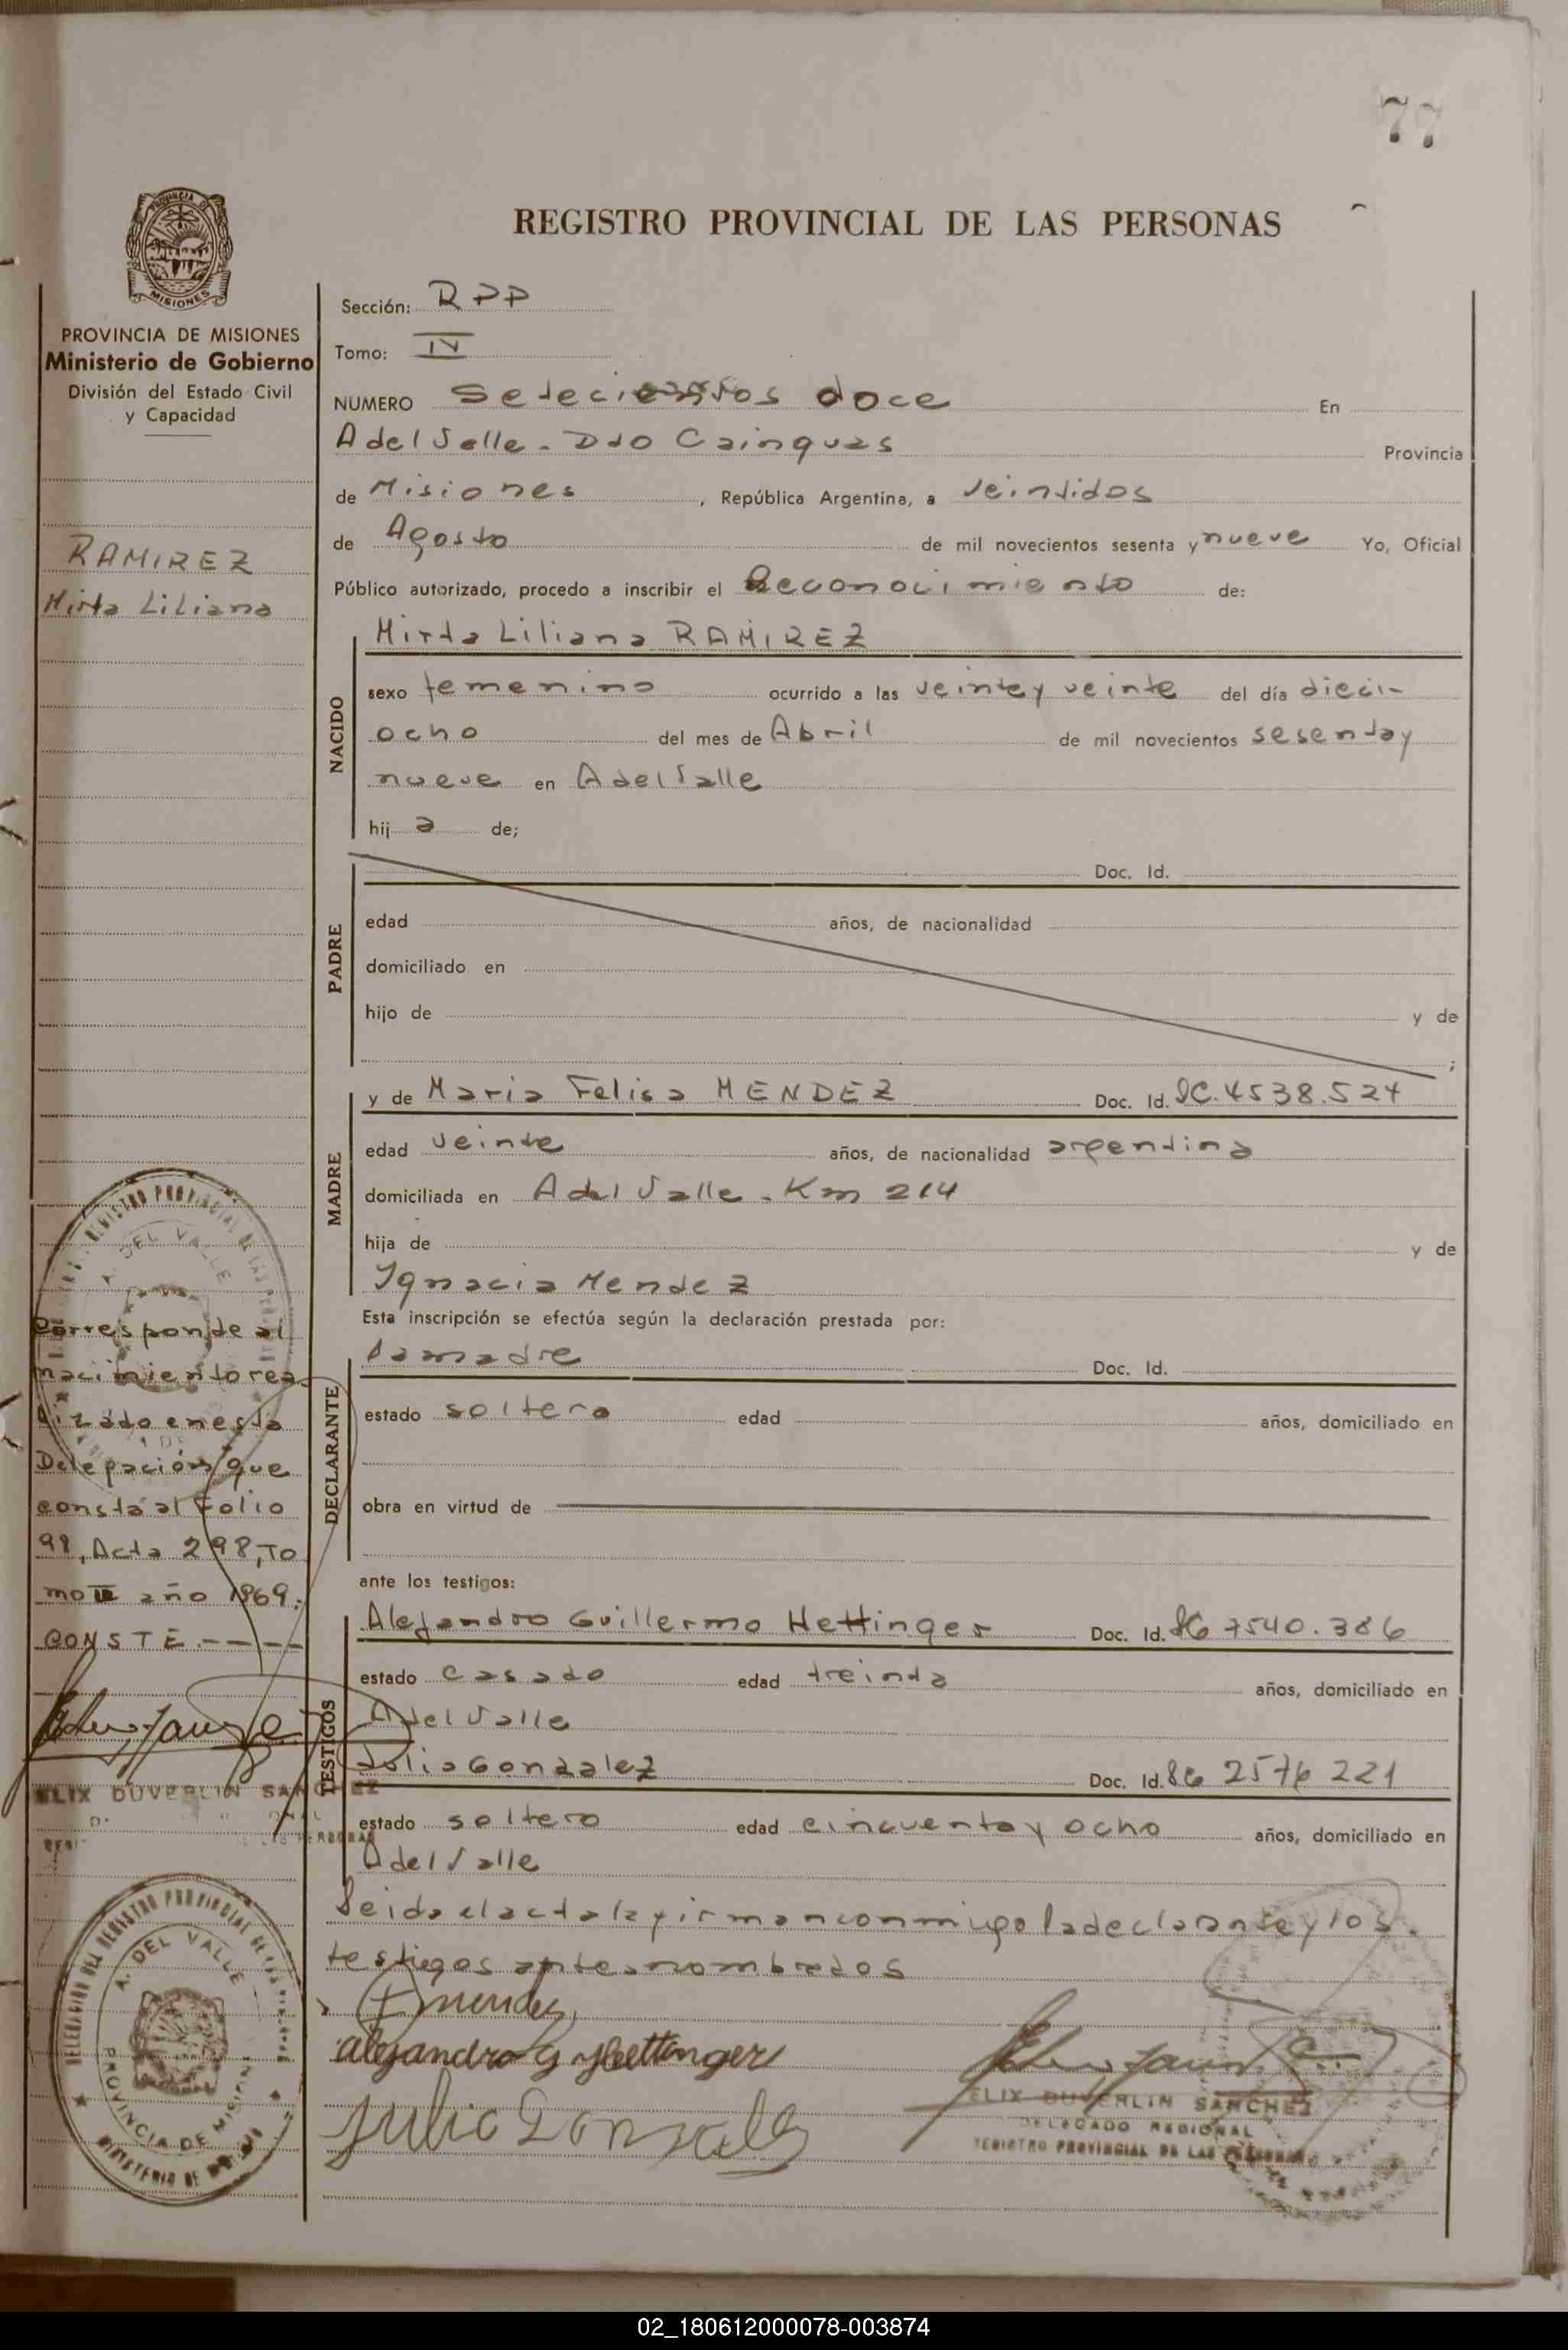 77
REGISTRO PROVINCIAL DE LAS PERSONAS
PROVINCIA DE MISIONES
MISIONES
PROVINCIA DE MISIONES
Ministerio de Gobierno
División del Estado Civil
y Capacidad
RAMIREZ
Mirta Liliana
Sección: RPP
Tomo: IV
NUMERO Setecientos doce En
A del Valle - Dto Cainguas Provincia
de Misiones, República Argentina, a veintidos
de Agosto de mil novecientos sesenta y nueve Yo, Oficial
Público autorizado, procedo a inscribir el Reconocimiento de:
NACIDO
Mirta Liliana RAMIREZ
sexo femenino ocurrido a las veinte y veinte del día dieci-
ocho del mes de Abril de mil novecientos sesenta y
nueve en A del Valle
hija de;
PADRE
Doc. Id.
edad años, de nacionalidad
domiciliado en
hijo de y de
;
MADRE
y de Maria Felisa MENDEZ Doc. Id. LC. 4538.527
edad veinte años, de nacionalidad argentina
domiciliada en A del Valle - Km 214
hija de y de
Ignacia Mendez
Esta inscripción se efectúa según la declaración prestada por:
DECLARANTE
La madre Doc. Id.
estado soltera edad años, domiciliado en
obra en virtud de
ante los testigos:
TESTIGOS
Alejandro Guillermo Hettinger Doc. Id. 7540.386
estado casado edad treinta años, domiciliado en
A del Valle
Julio Gonzalez Doc. Id. 2576 221
estado soltero edad cincuenta y ocho años, domiciliado en
A del Valle
Leida el acta la firman conmigo la declarante y los
testigos antes nombrados
F mendez
Alejandro G Hettinger
Julio Gonzalez
ELIX DUVERLIN SANCHEZ
DELEGADO REGIONAL
REGISTRO PROVINCIAL DE LAS PERSONAS
Corresponde al
nacimiento rea
lizado en esta
Delegación que
consta al Folio
98, Acta 298, To
mo II año 1969.
CONSTE.----
ELIX DUVERLIN SANCHEZ
DELEGACION DEL REGISTRO PROVINCIAL DE LAS PERSONAS
A. DEL VALLE
PROVINCIA DE MISIONES
MINISTERIO DE GOBIERNO
02_180612000078-003874